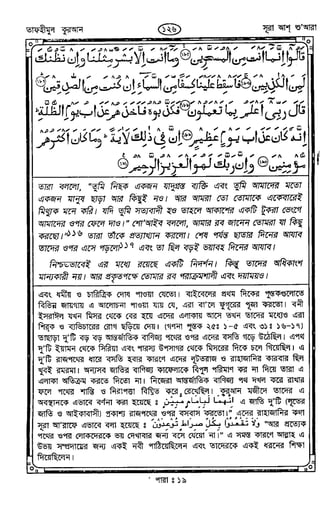 তাফহীমুল কুরআন
১২৬
সূরা আশ্ শু'আরা
قَالُوٓا إِنَّمَآ أَنتَ مِنَ الْمُسَحَّرِينَ ۝ وَمَآ أَنتَ إِلَّا بَشَرٌ مِّثْلُنَا وَإِن نَّظُنُّكَ
لَمِنَ الْكٰذِبِينَ ۝ فَأَسْقِطْ عَلَيْنَا كِسَفًا مِّنَ السَّمَآءِ إِن كُنتَ مِنَ الصّٰدِقِينَ ۝
قَالَ رَبِّىٓ أَعْلَمُ بِمَا تَعْمَلُونَ ۝ فَكَذَّبُوهُ فَأَخَذَهُمْ عَذَابُ يَوْمِ الظُّلَّةِ
إِنَّهُ كَانَ عَذَابَ يَوْمٍ عَظِيمٍ ۝ إِنَّ فِى ذٰلِكَ لَاٰيَةً وَمَا كَانَ أَكْثَرُهُم
مُّؤْمِنِينَ ۝ وَإِنَّ رَبَّكَ لَهُوَ الْعَزِيزُ الرَّحِيمُ ۝
তারা বললো, "তুমি নিছক একজন যাদুগ্রস্ত ব্যক্তি এবং তুমি আমাদের মতো
একজন মানুষ ছাড়া আর কিছুই নও। আর আমরা তো তোমাকে একেবারেই
মিথ্যুক মনে করি। যদি তুমি সত্যবাদী হও তাহলে আকাশের একটি টুকরা ভেংগে
আমাদের ওপর ফেলে দাও।" শো'আইব বললো, আমার রব জানেন তোমরা যা কিছু
করছো।১১৬ তারা তাঁকে প্রত্যাখ্যান করলো। শেষ পর্যন্ত ছাতার দিনের আযাব
তাদের ওপর এসে পড়লো১১৭ এবং তা ছিল বড়ই ভয়াবহ দিনের আযাব।
নিশ্চতভাবেই এর মধ্যে রয়েছে একটি নিদর্শন। কিন্তু তাদের অধিকাংশ
মান্যকারী নয়। আর প্রকৃতপক্ষে তোমার রব পরাক্রমশালী এবং দয়াময়ও।
এবং ধর্মীয় ও চারিত্রিক দোষ পাওয়া যেতো। বাইবেলের প্রথম দিকের পুস্তকগুলোতে
বিভিন্ন জায়গায় এ আলোচনা পাওয়া যায় যে, এরা বা'লে ফুগূরের পূজা করতো। বনী
ইসরাঈল যখন মিসর থেকে বের হয়ে এদের এলাকায় আসে তখন তাদের মধ্যেও এরা
শির্ক ও ব্যভিচারের রোগ ছড়িয়ে দেয়। (গণনা পুস্তক ২৫ঃ ১-৫ এবং ৩১ঃ ১৬-১৭)
তাছাড়া দু'টি বড় বড় আন্তর্জাতিক বাণিজ্য পথের ওপর এদের বসতি গড়ে উঠেছিল। এপথ
দু'টি ইয়ামন থেকে সিরিয়া এবং পারস্য উপসাগর থেকে মিসরের দিকে চলে গিয়েছিল। এ
দু'টি রাজপথের ধারে বসতি হবার কারণে এদের লূটতরাজ ও রাহাজানির কারবার ছিল
খুবই রমরমা। অন্যসব জাতির বাণিজ্য কাফেলাকে বিপুল পরিমাণ কর না দিয়ে তারা এ
এলাকা অতিক্রম করতে দিতো না। নিজেরা আন্তর্জাতিক বাণিজ্য পথ দখল করে রাখার
ফলে পথের শান্তি ও নিরাপত্তা বিঘ্নিত করে রেখেছিল। কুরআন মজীদে তাদের এ
অবস্থানকে এভাবে বর্ণনা করা হয়েছে : إِنَّهُمَا لَبِإِمَامٍ مُّبِينٍ এ জাতি দু'টি (লূতের
জাতি ও আইকাবাসী) প্রকাশ্য রাজপথের ওপর বসবাস করতো।" এদের রাহাজানির কথা
সূরা আ'রাফে এভাবে বলা হয়েছে : وَلَا تَقْعُدُوا بِكُلِّ صِرَاطٍ تُوعِدُونَ "আর প্রত্যেক
পথের ওপর লোকদেরকে ভয় দেখাবার জন্য বসে যেয়ো না।" এ সমস্ত কারণে আল্লাহ এ
উভয় সম্প্রদায়ের জন্য একই নবী পাঠিয়েছিলেন এবং তাদেরকে একই ধরনের শিক্ষা
দিয়েছিলেন।
পারা : ১৯